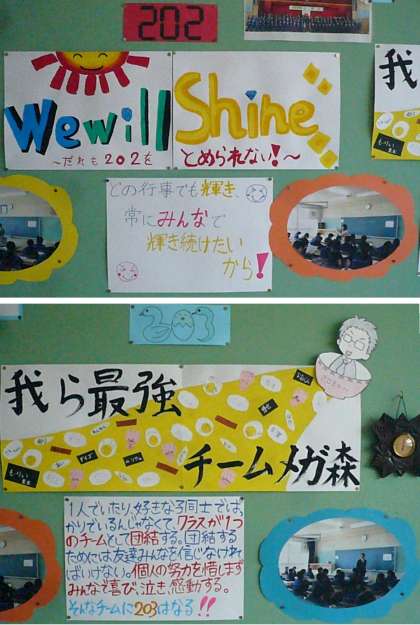 202
We will Shine
～だれも202を
とめられない!～
我
どの行事でも輝き、
常にみんなで
輝き続けたい
から!
我ら最強
チームメガ森
1人でいたり、好きな子同士でば
かりでいるんじゃなくて、クラスが1つ
のチームとして団結する。団結する
ためには友達みんなを信じなければ
ばいけない。個人の努力を惜しまず
みんなで喜び、泣き、感動する。
そんなチームに203はなる!!